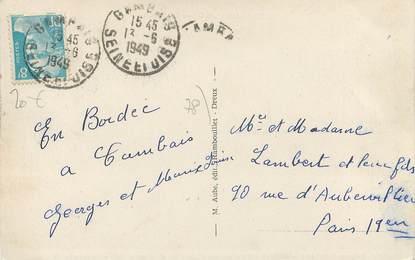 GAMBAIS
15 45
13 -6
1949
SEINE ET OISE
GAMBAIS
15 45
13 -6
1949
SEINE ET OISE
GAMBA
8F
20 €
78
En Bordée
a Gambais
Georges et Marie
M. Aube, édit., Rambouillet - Dreux
Mr et Madame
Lambert et leur fils
90 rue d'Aubervilliers
Paris 19em